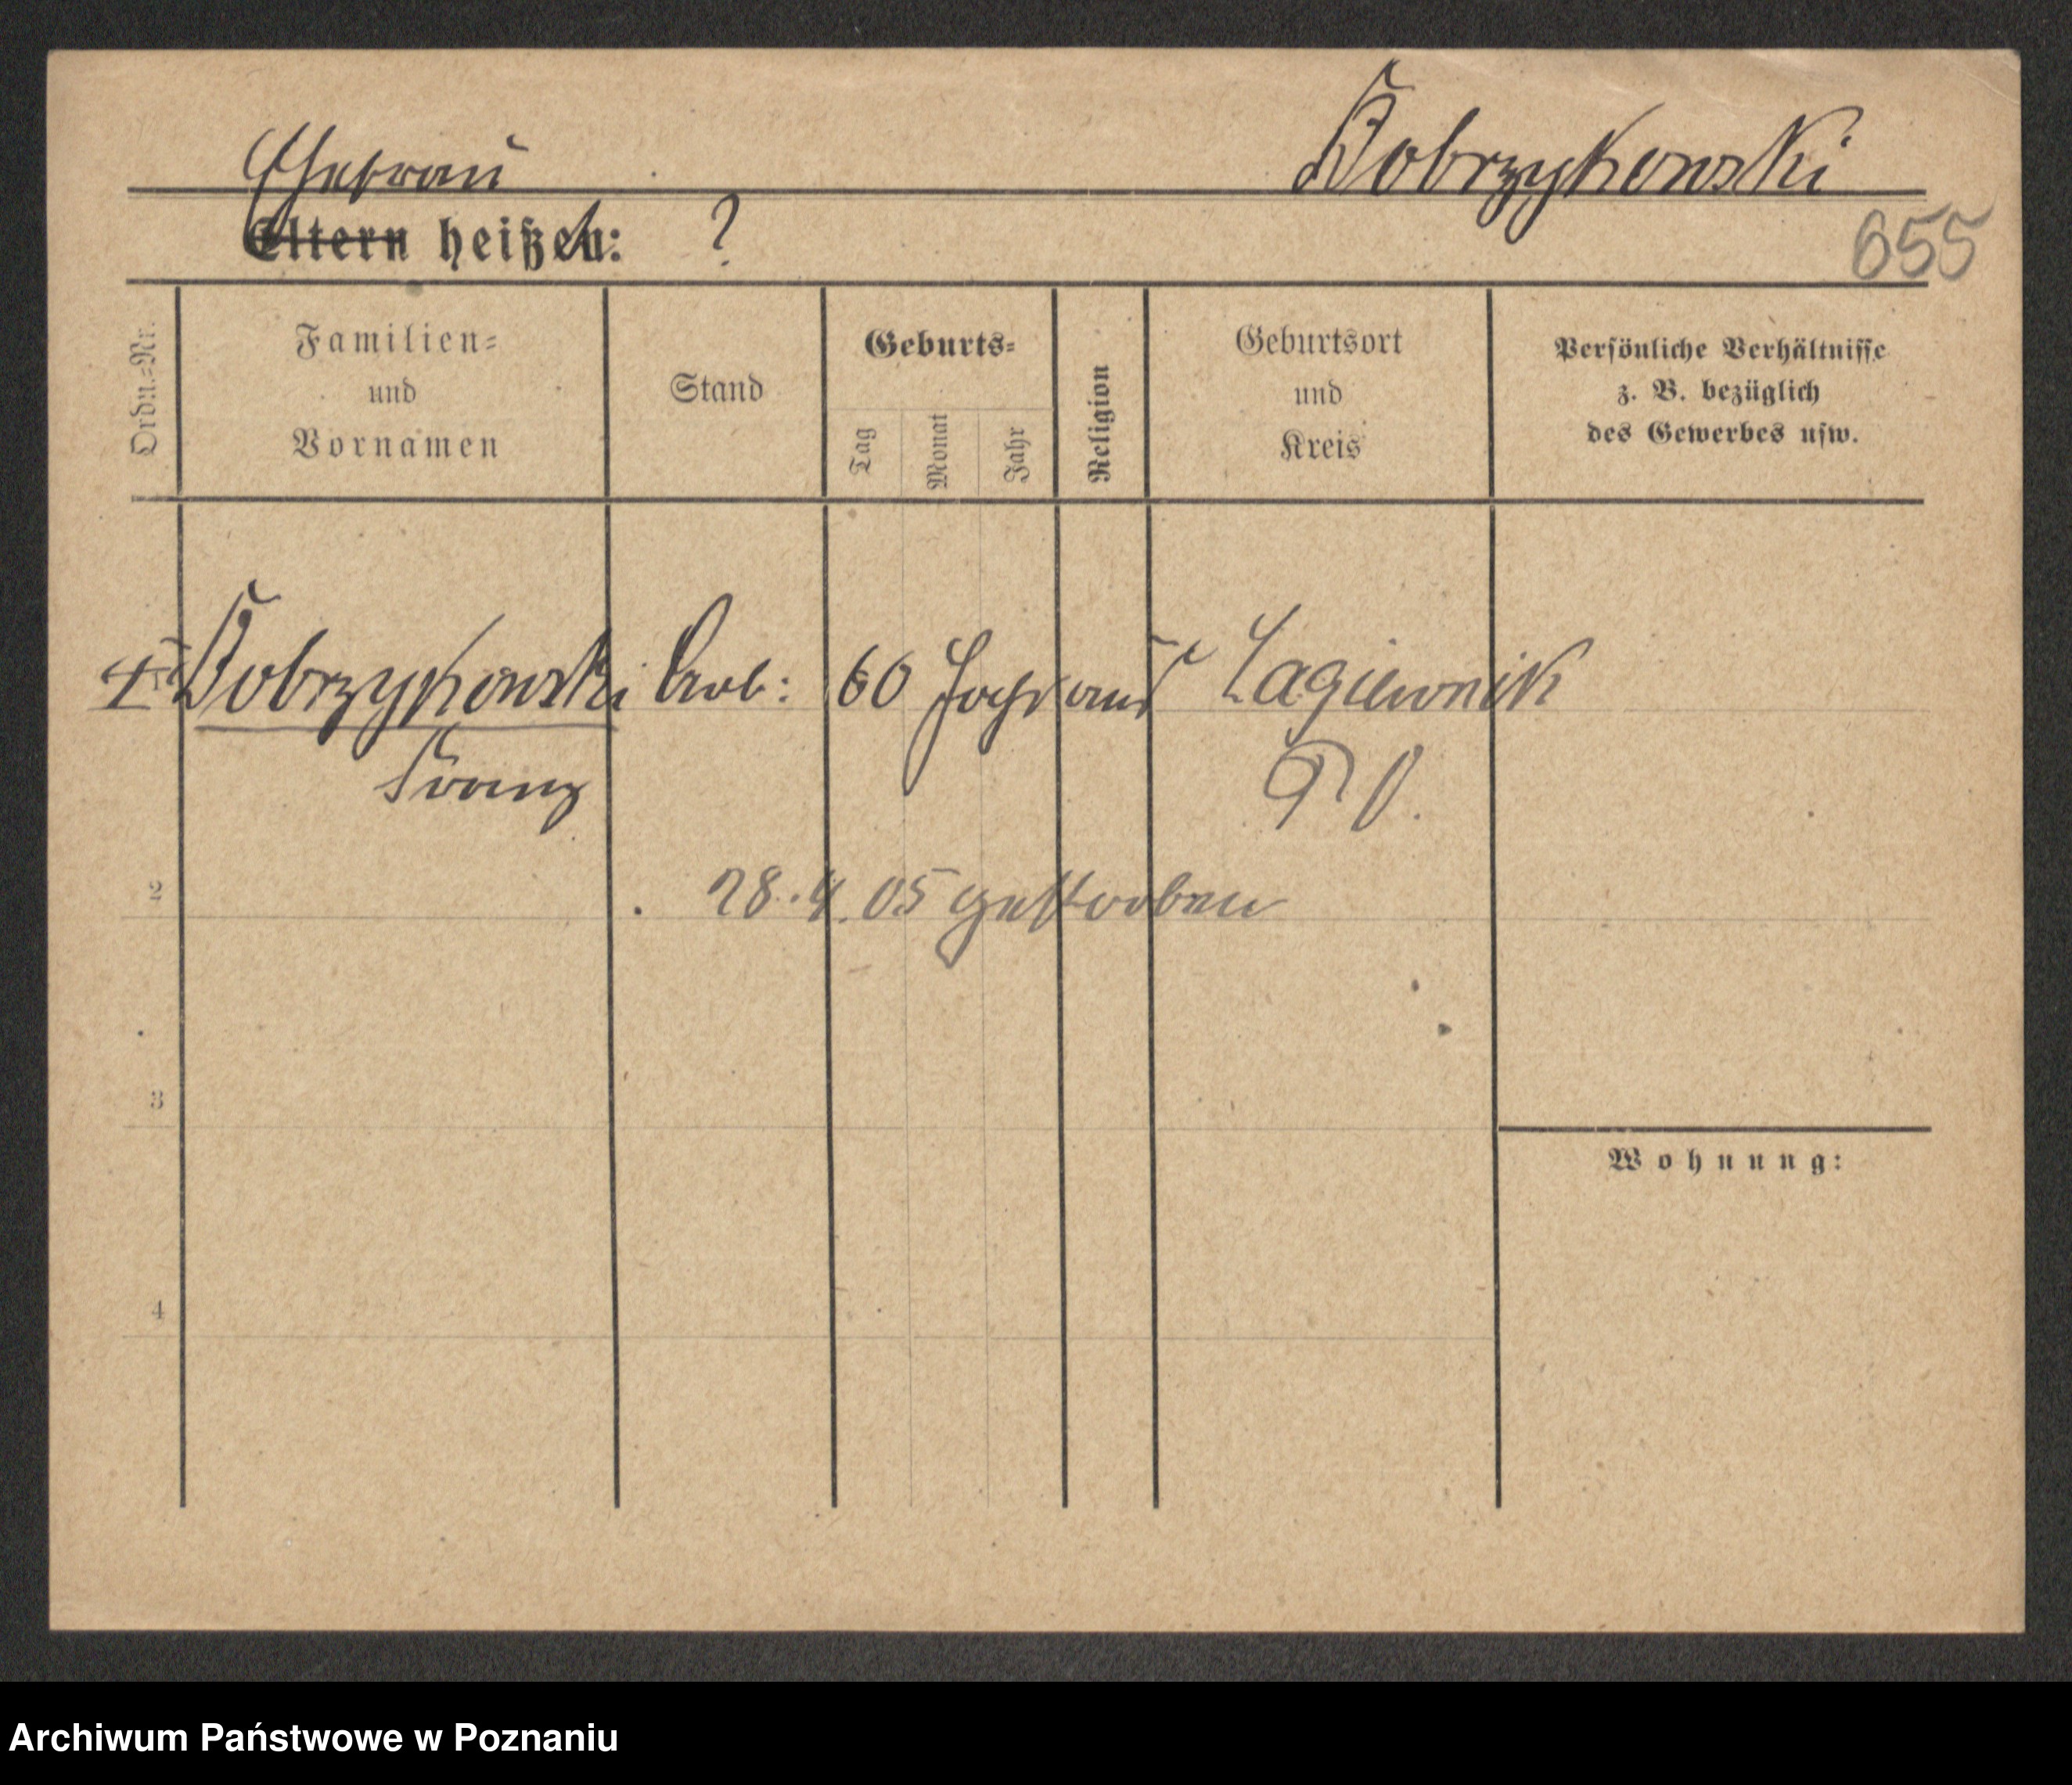 Ehefrau Dobrzykowski
Eltern heißen: ?
655
Ordn.-Nr.
Familien-
und
Vornamen
Stand
Geburts-
Tag
Monat
Jahr
Religion
Geburtsort
und
Kreis
Persönliche Verhältnisse
z. B. bezüglich
des Gewerbes usw.
1 Dobrzykowski Arb: 60 Jahr aus Lagiewnik
Franz
2
28.4.05 gestorben
3
4
Wohnung:
Archiwum Państwowe w Poznaniu